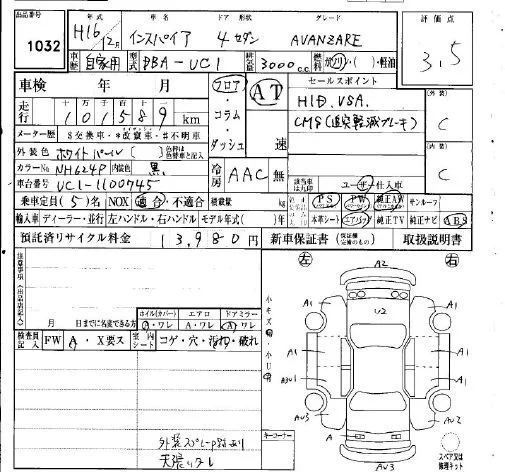 出品番号 1032
年式 H16 / 12月
車名 インスパイア
ドア 形状 4 セダン
グレード AVANZARE
評価点 3.5
車歴 自家用
型式 DBA-UC1
排気量 3000 c.c.
燃料 ガソリン・( )・軽油
車検 年 月
十 万 千 百 十 一
走行 101589 km
メーター歴 $交換車・*改竄車・#不明車
外装色 ホワイトパール ( )
カラーNo NH624P 内装色 黒
車台番号 UC1-1100745
フロア・コラム・ダッシュ
AT 速
冷房 AAC 無
セールスポイント
HID、VSA、
CMS(追突軽減ブレーキ)
外装 C
内装 C
ユーザー仕入車
乗車定員 ( 5 ) NOX 適合・不適合 積載量 kg
PS PW 純正AW サンルーフ
輸入車 ディーラー・並行 左ハンドル・右ハンドル モデル年式( )
本革シート エアバッグ 純正TV 純正ナビ ABS
預託済リサイクル料金 13,980 円
新車保証書 取扱説明書
注意事項(出品店記入)
月 日までに名変できる方
ホイル(カバー) A・ワレ
エアロ A・ワレ
ドアミラー A・ワレ
検査員記入 FW A・X要ス
室内 シート コゲ・穴・汚れ・破れ
外装スプレー跡あり
天張りタレ
小キズ 小U
キーコーナー
左 右
A2
A1 U2 A1
A1 A1
A3U1 A1
AU3 AU2
A
AU3
スペア又は修理キット